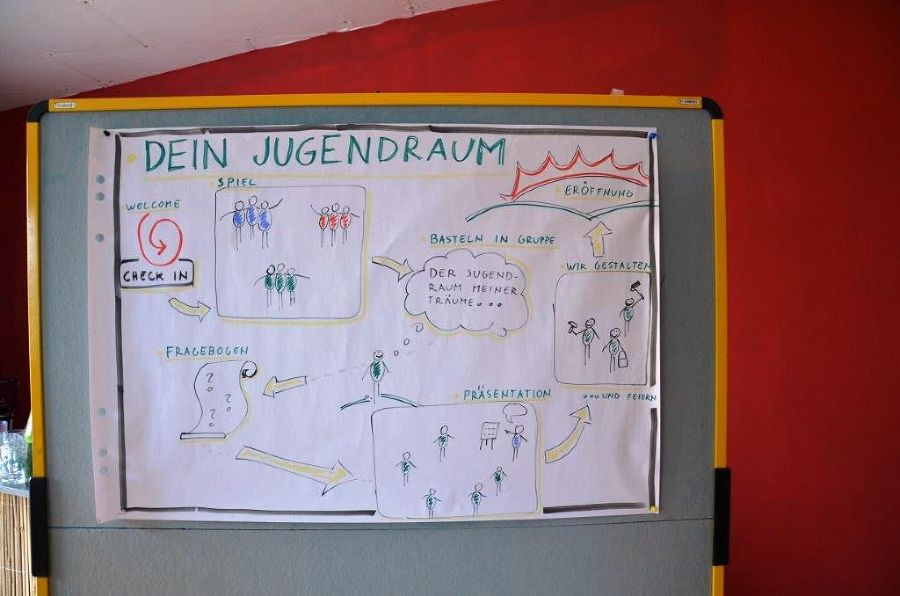 DEIN JUGENDRAUM
WELCOME
CHECK IN
SPIEL
BASTELN IN GRUPPE
DER JUGEND-
RAUM MEINER
TRÄUME...
FRAGEBOGEN
? ?
?
PRÄSENTATION
WIR GESTALTEN
...UND FEIERN
ERÖFFNUNG